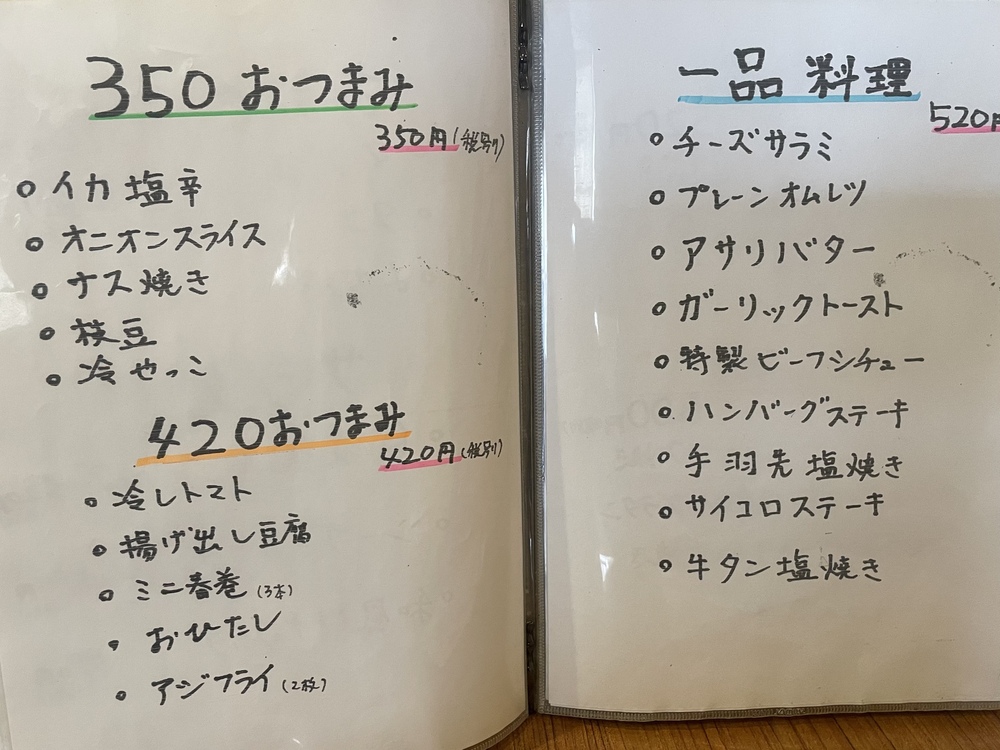 350おつまみ
350円(税別)
イカ塩辛
オニオンスライス
ナス焼き
枝豆
冷やっこ
420おつまみ
420円(税別)
冷しトマト
揚げ出し豆腐
ミニ春巻(3本)
おひたし
アジフライ(2枚)
一品料理
520円
チーズサラミ
プレーンオムレツ
アサリバター
ガーリックトースト
特製ビーフシチュー
ハンバーグステーキ
手羽先塩焼き
サイコロステーキ
牛タン塩焼き